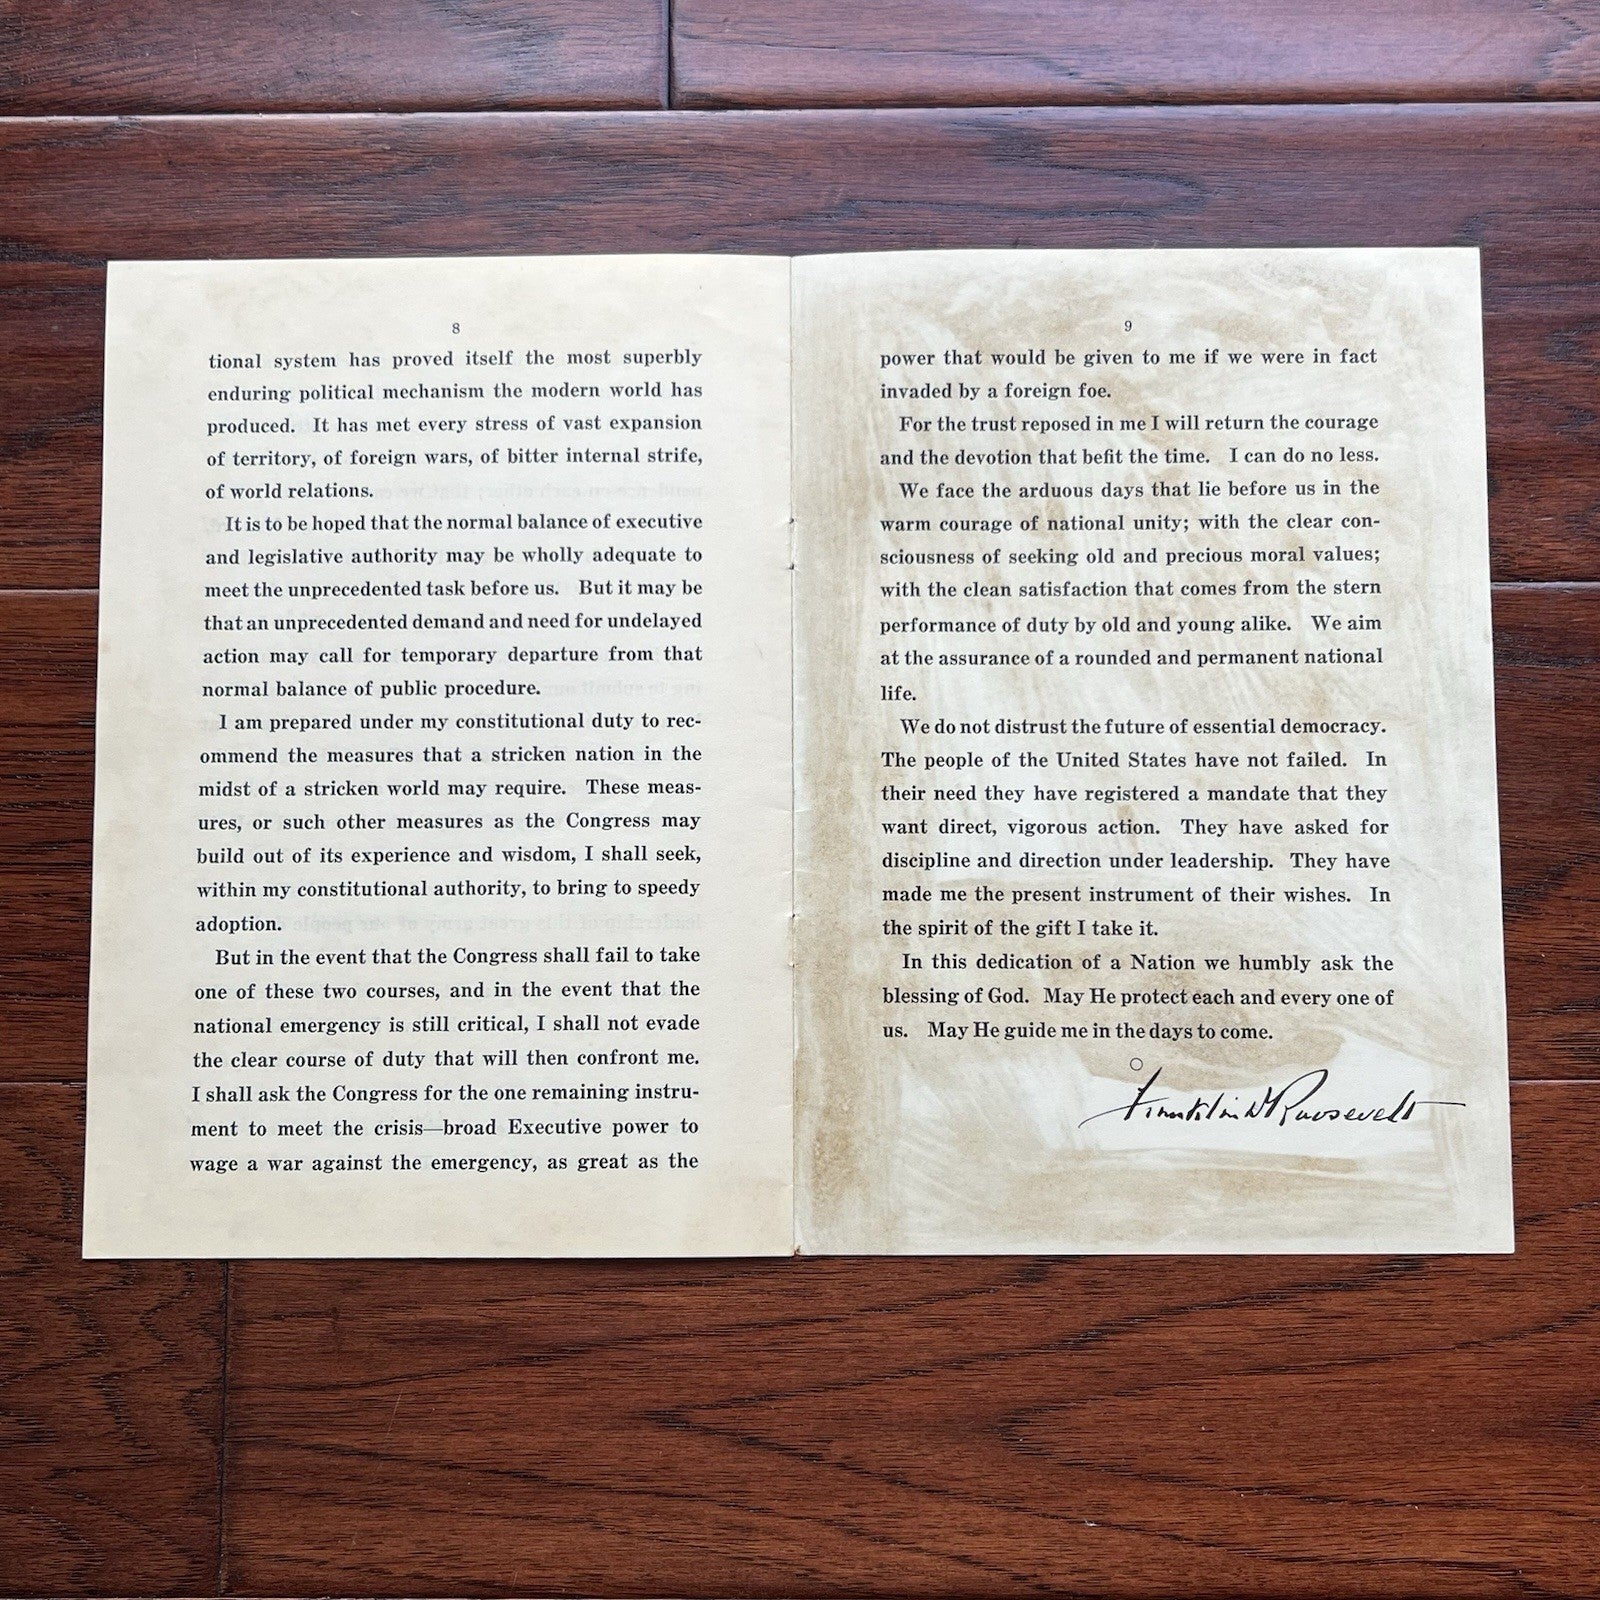 8
tional system has proved itself the most superbly
enduring political mechanism the modern world has
produced. It has met every stress of vast expansion
of territory, of foreign wars, of bitter internal strife,
of world relations.
It is to be hoped that the normal balance of executive
and legislative authority may be wholly adequate to
meet the unprecedented task before us. But it may be
that an unprecedented demand and need for undelayed
action may call for temporary departure from that
normal balance of public procedure.
I am prepared under my constitutional duty to rec-
ommend the measures that a stricken nation in the
midst of a stricken world may require. These meas-
ures, or such other measures as the Congress may
build out of its experience and wisdom, I shall seek,
within my constitutional authority, to bring to speedy
adoption.
But in the event that the Congress shall fail to take
one of these two courses, and in the event that the
national emergency is still critical, I shall not evade
the clear course of duty that will then confront me.
I shall ask the Congress for the one remaining instru-
ment to meet the crisis—broad Executive power to
wage a war against the emergency, as great as the
9
power that would be given to me if we were in fact
invaded by a foreign foe.
For the trust reposed in me I will return the courage
and the devotion that befit the time. I can do no less.
We face the arduous days that lie before us in the
warm courage of national unity; with the clear con-
sciousness of seeking old and precious moral values;
with the clean satisfaction that comes from the stern
performance of duty by old and young alike. We aim
at the assurance of a rounded and permanent national
life.
We do not distrust the future of essential democracy.
The people of the United States have not failed. In
their need they have registered a mandate that they
want direct, vigorous action. They have asked for
discipline and direction under leadership. They have
made me the present instrument of their wishes. In
the spirit of the gift I take it.
In this dedication of a Nation we humbly ask the
blessing of God. May He protect each and every one of
us. May He guide me in the days to come.
Franklin D Roosevelt